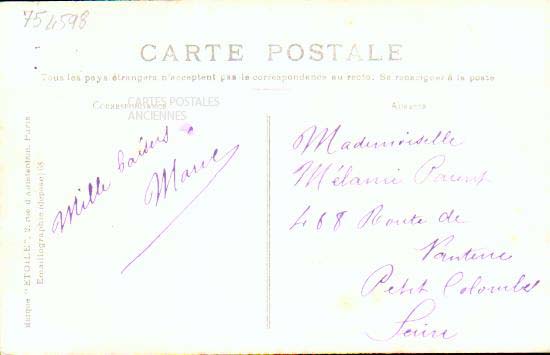 754598
CARTE POSTALE
Tous les pays étrangers n'acceptent pas la correspondance au recto. Se renseigner à la poste
CORRESPONDANCE
CARTES POSTALES
ANCIENNES
ADRESSE
Mille baisers
Marie
Mademoiselle
Mélanie Parent
468 Route de
Petit Colombes
Seine
Marque "ETOILE", Paris
Emaillographie (déposé)